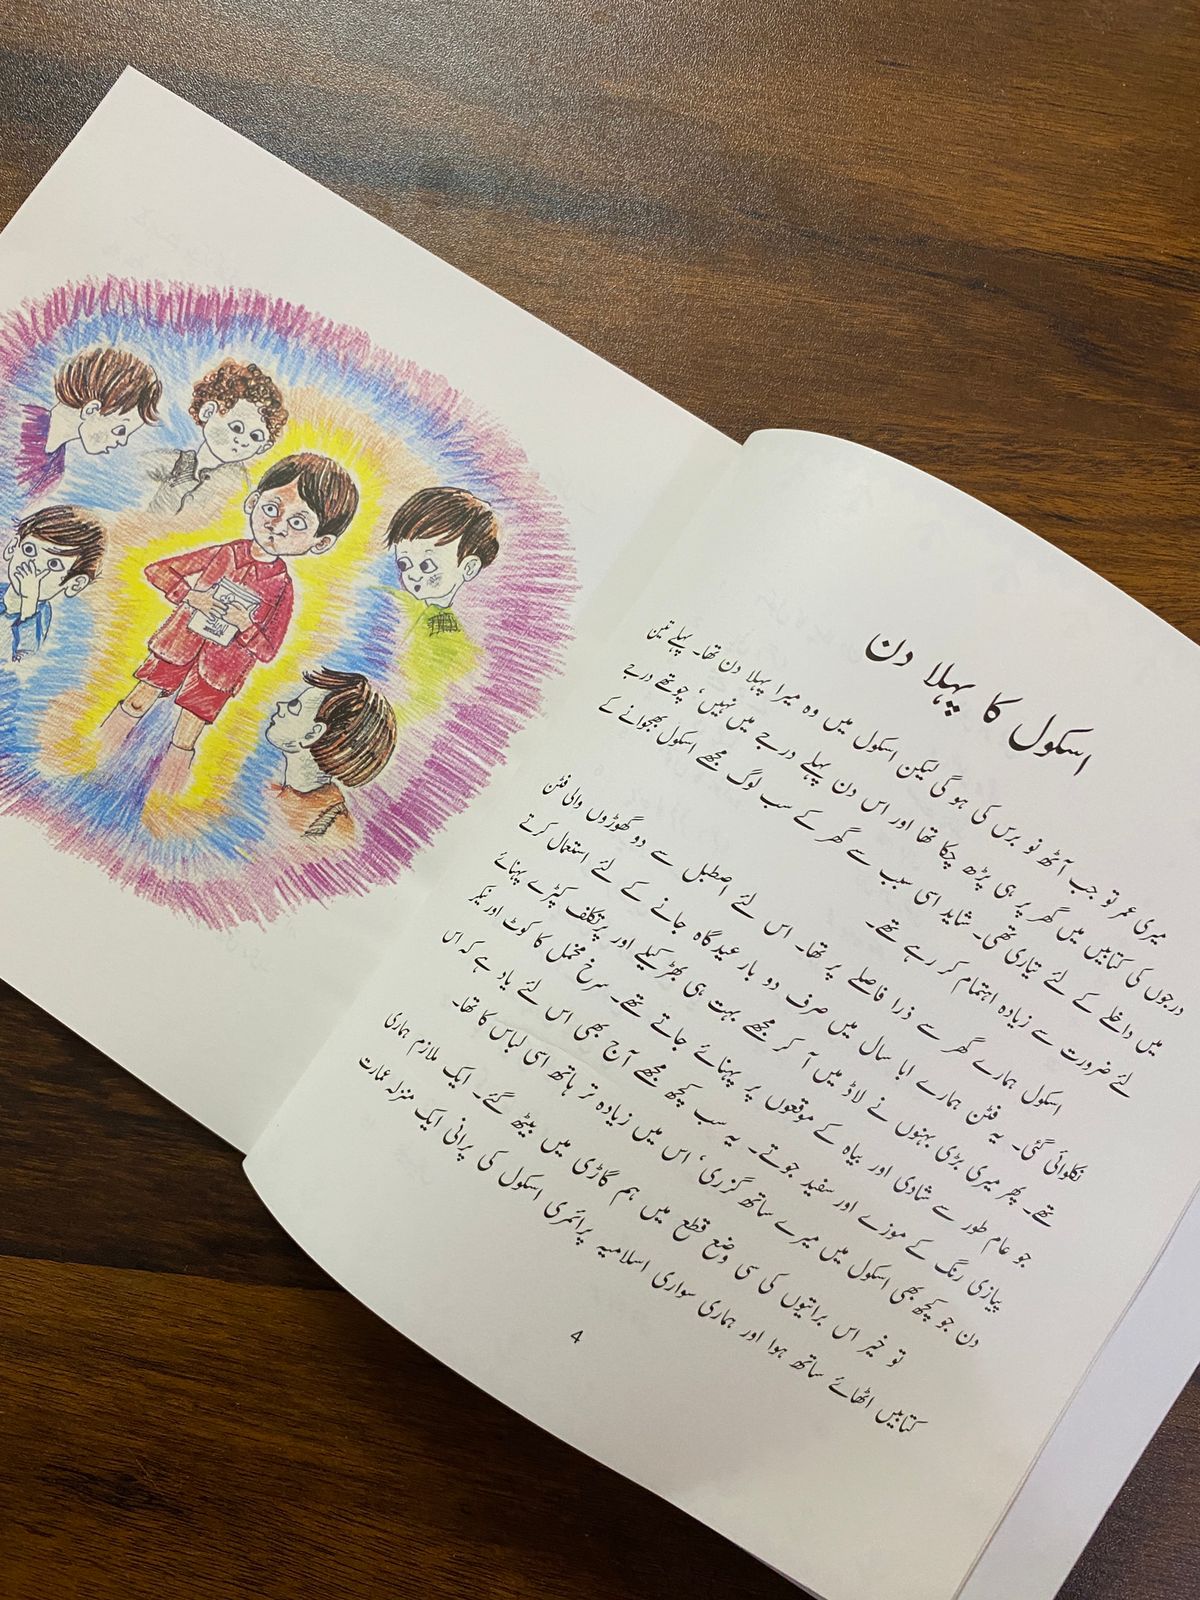 اسکول کا پہلا دن
میری عمر تو جب آٹھ نو برس کی ہو گی لیکن اسکول میں وہ میرا پہلا دن تھا۔ پہلے تین
درجوں کی کتابیں میں گھر پر ہی پڑھ چکا تھا اور اس دن پہلے درجے میں نہیں، چوتھے درجے
میں داخلے کے لئے تیاری تھی۔ شاید اسی سبب سے گھر کے سب لوگ مجھے اسکول بھجوانے کے
لئے ضرورت سے زیادہ اہتمام کر رہے تھے۔
اسکول ہمارے گھر سے ذرا فاصلے پر تھا۔ اس لئے اصطبل سے دو گھوڑوں والی فٹن
نکلوائی گئی۔ یہ فٹن ہمارے ابا سال میں صرف دو بار عید گاہ جانے کے لئے استعمال کرتے
تھے۔ پھر میری بڑی بہنوں نے لاڈ میں آ کر مجھے بہت ہی بھڑکیلے اور پرتکلف کپڑے پہنائے
جو عام طور سے شادی اور بیاہ کے موقعوں پر پہنائے جاتے تھے۔ سرخ مخمل کا کوٹ اور نیکر
پیازی رنگ کے موزے اور سفید جوتے۔ یہ سب کچھ مجھے آج بھی اس لئے یاد ہے کہ اس
دن جو کچھ بھی اسکول میں میرے ساتھ گزری، اس میں زیادہ تر ہاتھ اسی لباس کا تھا۔
تو خیر اس براتیوں کی سی وضع قطع میں ہم گاڑی میں بیٹھ گئے۔ ایک ملازم ہماری
کتابیں اٹھائے ساتھ ہوا اور ہماری سواری اسلامیہ پرائمری اسکول کی پرانی ایک منزلہ عمارت
4